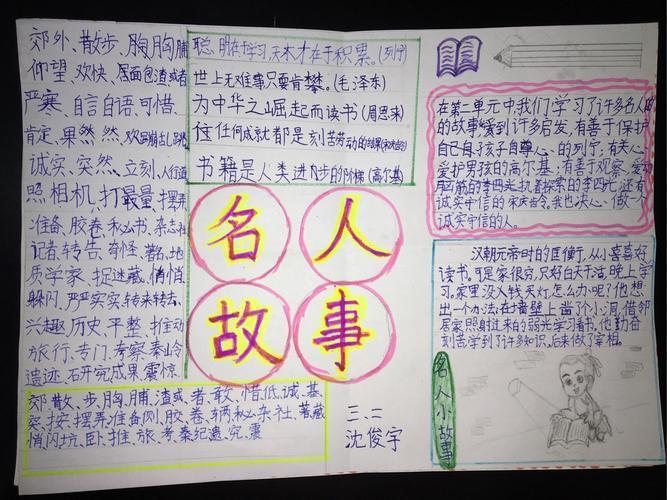 郊外、散步、胸脯
仰望、欢快、面包渣或者
严寒、自言自语、可惜、
肯定、果然、然、欢蹦乱跳
诚实、突然、立刻、
照相机、打量、摆弄
准备、胶卷、秘书、杂志社
记者、转告、奇怪、著名、地
质学家、捉迷藏、悄悄
躲闪、严严实实、转来转去、
兴趣、历史、平整、推动
旅行、专门、考察、秦岭
遗迹、研究、成果、震惊、
郊、散、步、胸、脯、渣、或、者、敢、惜、低、诚、基、
突、按、摆、弄、准、备、侧、胶、卷、辆、秘、杂、社、著、藏
悄、闪、坑、卧、推、旅、考、秦、纪、遗、究、震
聪明在于学习,天才在于积累。(列宁)
世上无难事只要肯攀。(毛泽东)
为中华之崛起而读书(周恩来)
任何成就都是刻苦劳动的结果(宋庆龄)
书籍是人类进步的阶梯(高尔基)
名人
故事
三、二
沈俊宇
在第二单元中,我们学习了许多名人
的故事受到许多启发,有善于保护
自己自孩子自尊心、的列宁,有关心
爱护男孩的高尔基;有善于观察,爱动
脑筋的李四光,执着探索的李四光,还有
诚实守信的宋庆令。我也决心、做一个
诚实守信的人。
汉朝元帝时的匡衡,从小喜喜好
读书。可是家很穷,只好白天干活,晚上学
习。家里没人钱买灯,怎么办呢?他想
出一个办法,在墙壁上凿了个小洞,借邻
居家照射过来的弱光学习看书。他勤奋
刻苦学到了许多知识,后来做了宰相。
名人小故事